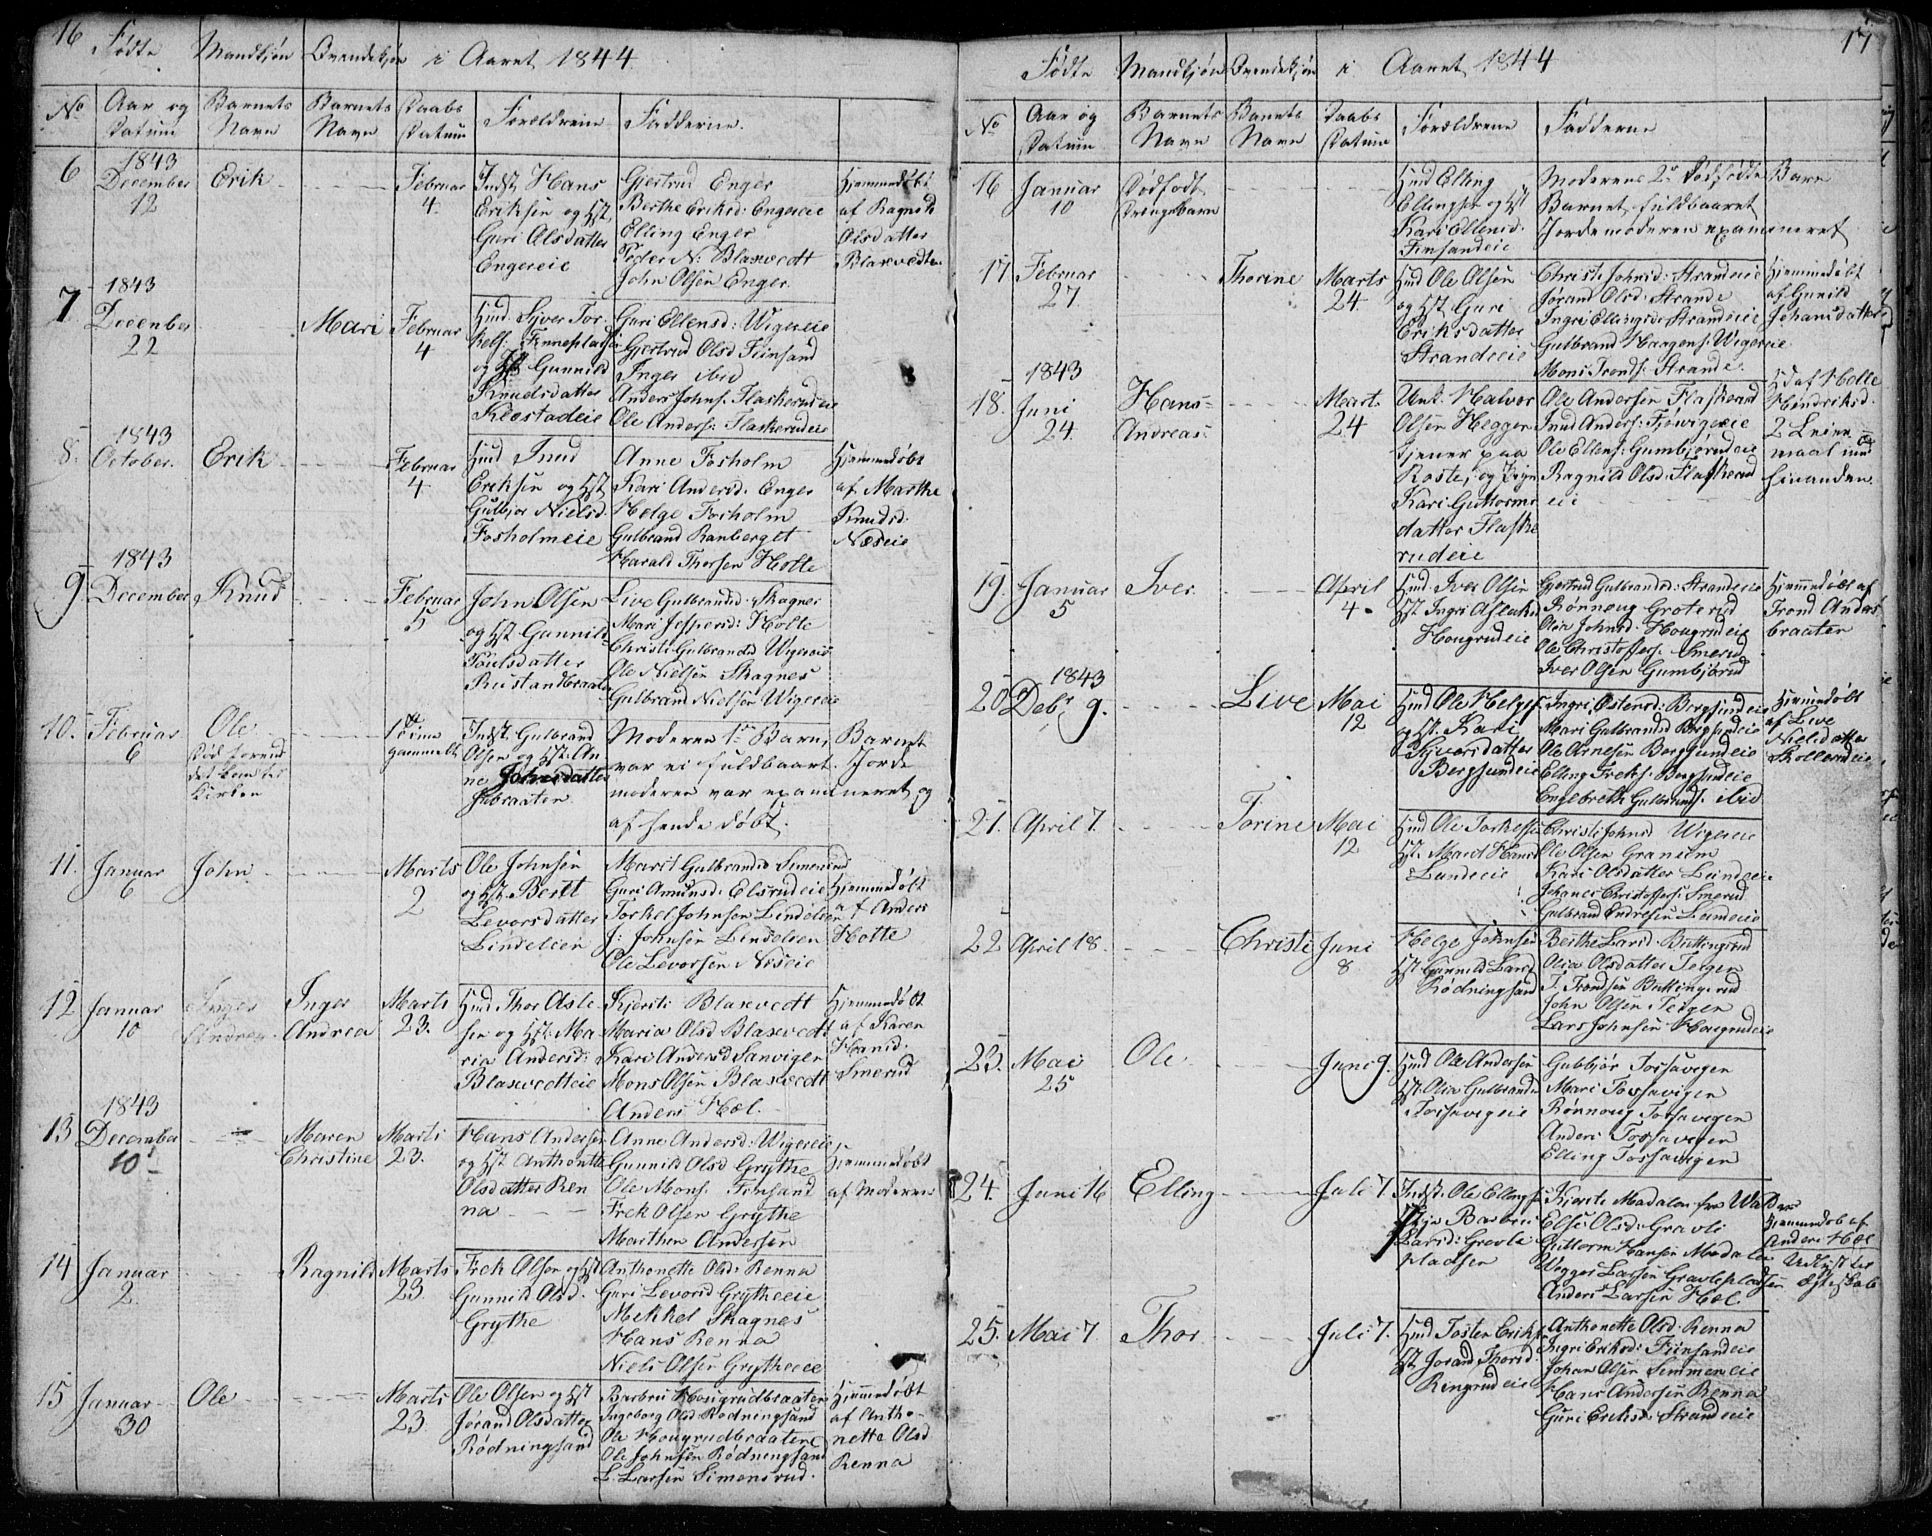 16 Fødte Mandkjøn Qvindekjøn i Aaret 1844
No Aar og Datum Barnets Navn Barnets Navn Daabs Datum Forældrene Fadderne.
6 1843 December 12 Erik Februar 4.
Indst. Hans
Eriksen og Hst
Guri Olsdatter
Engereie
Gjertrud Enger
Berthe Eriksd: Engereie
Elling Enger
Peder N: Blaxvedt
John Olsen Enger
Hjemmedøbt
af Ragnild
Olsdatter
Blaxvedt
7 1843 December 22 Mari Februar 4
Hmd. Syver Tor-
kels: Finnepladsen
og Hst Gunnild
Knudsdatter
Klostadeie
Guri Ellensd: Wigereie
Gjertrud Olsd Fiinsand
Inger ibid
Anders Johns. Flaskerudeie
Ole Anders: Flaskerudeie
8. 1843 October. Erik Februar 4
Hmd Knud
Eriksen og Hst
Gulbjør Nielsd.
Fosholmeie
Anne Fosholm
Kari Andersd. Enger
Helge Fosholm
Gulbrand Ranberget
Harald Thorsen Holte
Hjemmedøbt
af Marthe
Knudsd.
Næseie
9. 1843 December Knud Februar 5
John Olsen
og Hst Gunnild
Poulsdatter
Rustandbraaten
Live Gulbrandsd. Skagnes
Mari Jespersd: Holte
Christi Gulbrandsd Wigereie
Ole Nielsen Skagnes
Gulbrand Nielsen Wigereie
10. Februar 6 Ole
Død forend
det kom til
Kirken
1 Time
gammelt
Indst. Gulbrand
Olsen og Hst. An
ne Johnsdatter
Moderen 1ste Barn,
var ei fuldbaart.
moderen var examineret og
af hende døbt.
Barnet
Jorde
11. Januar 6 John Marts 2
Ole Johnsen
og Hst Beret
Levorsdatter
Lindelien
Marit Gulbrandsd Simensrud
Guri Amundsd: Elsrudeie
Torkel Johnsen Lindelien
J: Johnsen Lindelien
Ole Levorsen Næseie
Hjemmedøbt
af Anders
Holte
12 Januar 10 Inger Andrea Inger Andrea Marts 23.
Hmd Thor Asle
sen og Hst: Ma
ria Andersd:
Blaxvedteie
Kjersti Blaxvedt
Maria Olsd Blaxvedt
Kari Andersd Sanvigen
Mons Olsen Blaxvedt
Anders Hæl.
Hjemmedøbt
af Karen
Hansd.
Smerud
13 1843 December 10 Maren Christine Marts 23.
Hans Andersen
og Hst Anthonette
Olsdatter Ren
na
Anne Andersd: Wigereie
Gunnild Olsd Grythe
Ole Mons. Finsand
Frek Olsen Grythe
Marthen Andersen
Hjemmedøbt
af Moderen
14 Januar 2 Ragnild Marts 23
Frek Olsen og Hst
Gunnild Olsd.
Grythe
Anthonette Olsd: Renna
Guri Levorsd Grytheeie
Mekkel Skagnes
Hans Renna
Niels Olsen Grytheeie
15 Januar 30 Ole Marts 23
Ole Olsen og Hst
Jørand Olsdatter
Rødningsand
Barbru Hougrudbraaten
Ingeborg Olsd Rødningsand
Ole Hougrudbraaten
Ole Johnsen Rødningsand
L. Larsen Simensrud.
Hjemmedøbt
af Antho-
nette Olsd
Renna
17
Fødte Mandkjøn Qvindekjøn i Aaret 1844
No Aar og Datum Barnets Navn Barnets Navn Daabs Datum Forældrene Fadderne
16 Januar 10 Dødfødt Drengebarn
Hmd Elling
Ellingsen og Hst
Kari Ellensd.
Finsandeie
Moderens 2det Dødfødte Barn
Barnet fuldbaaret
Jordemoderen examineret
17 Februar 27. Thorine Marts 24.
Hmd Ole Olsen
og Hst. Guri
Eriksdatter
Strandeeie
Christi Johnsd: Strandeeie
Jørand Olsd: Strande
Ingri Ellingsd: Strandeeie
Gulbrand Haagens: Wigereie
Mons Tronds: Strande.
Hjemmedøbt
af Gunild
Johansdatter
18. 1843 Juni 24. Hans Andreas Marts 24
Unk. Halvor
Olsen Hegger
tjener paa
Roste, og Pige
Kari Guttorms
datter Flaske
rudeie
Ole Andersen Flaskerud
Knud Anders: Fjøsvigeie
Ole Ellens: Gumbjørudeie
Ragnild Olsd. Flaskerud
eie
Hd af Holte
Hendriksd.
2 Leier
maal med
hinanden
19. Januar 5 Iver April 4
Hmd Iver Olsen
Hst Ingri Aslaksd
Hougrudeie
Gjertrud Gulbrandsd: Strandeeie
Rønnoug Groterud
Olia Johnsd: Hougrudeie
Ole Christoffers: Smerud
Iver Olsen Gumbjørud
Hjemmedøbt af
Trond Anders
braaten
20 1843 Debr 9. Live Mai 12
Hmd Ole Helges
og Hst. Kari
Syversdatter
Bergsundeie
Ingri Ostensd: Bergsundeie
Mari Gulbrandsd Bergsundeie
Ole Arnesen Bergsundeie
Elling Freks: Bergsundeie
Engebreth Gulbrands: ibid
Hjemmedøbt
af Live
Nielsdatter
Skollerudeie
21. April 7. Torine Mai 12
Hmd Ole Torkelsen
Hst. Marit Hansd
Lundeeie
Christi Johnsd Wigereie
Ole Olsen Graneim
Kari Olsdatter Lundeeie
Johanes Christoffers: Smerud
Gulbrand Endresen Lundeeie
22 April 18. Christi Juni 8
Helge Johnsen
Hst Gunnild Larsd
Rødningsand
Berthe Larsd. Buttingsrud
Olia Olsdatter Teigen
T. Trondsen Buttingsrud
John Olsen Teigen
Lars Johnsen Hougrudeie
23. Mai 25 Ole Juni 9.
Hmd Ole Andersen
Hst Olia Gulbrandsd
Torsavigeie
Gubbjør Torsavigen
Mari Torsavigen
Rønnoug Torsavigen
Anders Torsavigen
Elling Torsavigen
24. Juni 16 Elling Juli 7.
Indst. Ole Ellings:
Pige Barbru
Larsd: Gravle
pladsen
Kjersti Madalen fra Walders
Else Olsd: Gravli
Guttorm Hansen Madalen
Wegger Larsen Gravlepladsen
Anders Larsen Hæl
Hjemmedøb af
Anders Hæl
Udlyst til
Ægteskab
25. Mai 7 Thor Juli 7.
Hmd Tosten Eriks
Hst Jorand Thorsd.
Ringerudeie
Anthonette Olsd: Renna
Ingri Eriksd: Fiinsandeie
Johan Olsen Simmeneie
Hans Andersen Renna
Guri Eriksd: Strandeeie